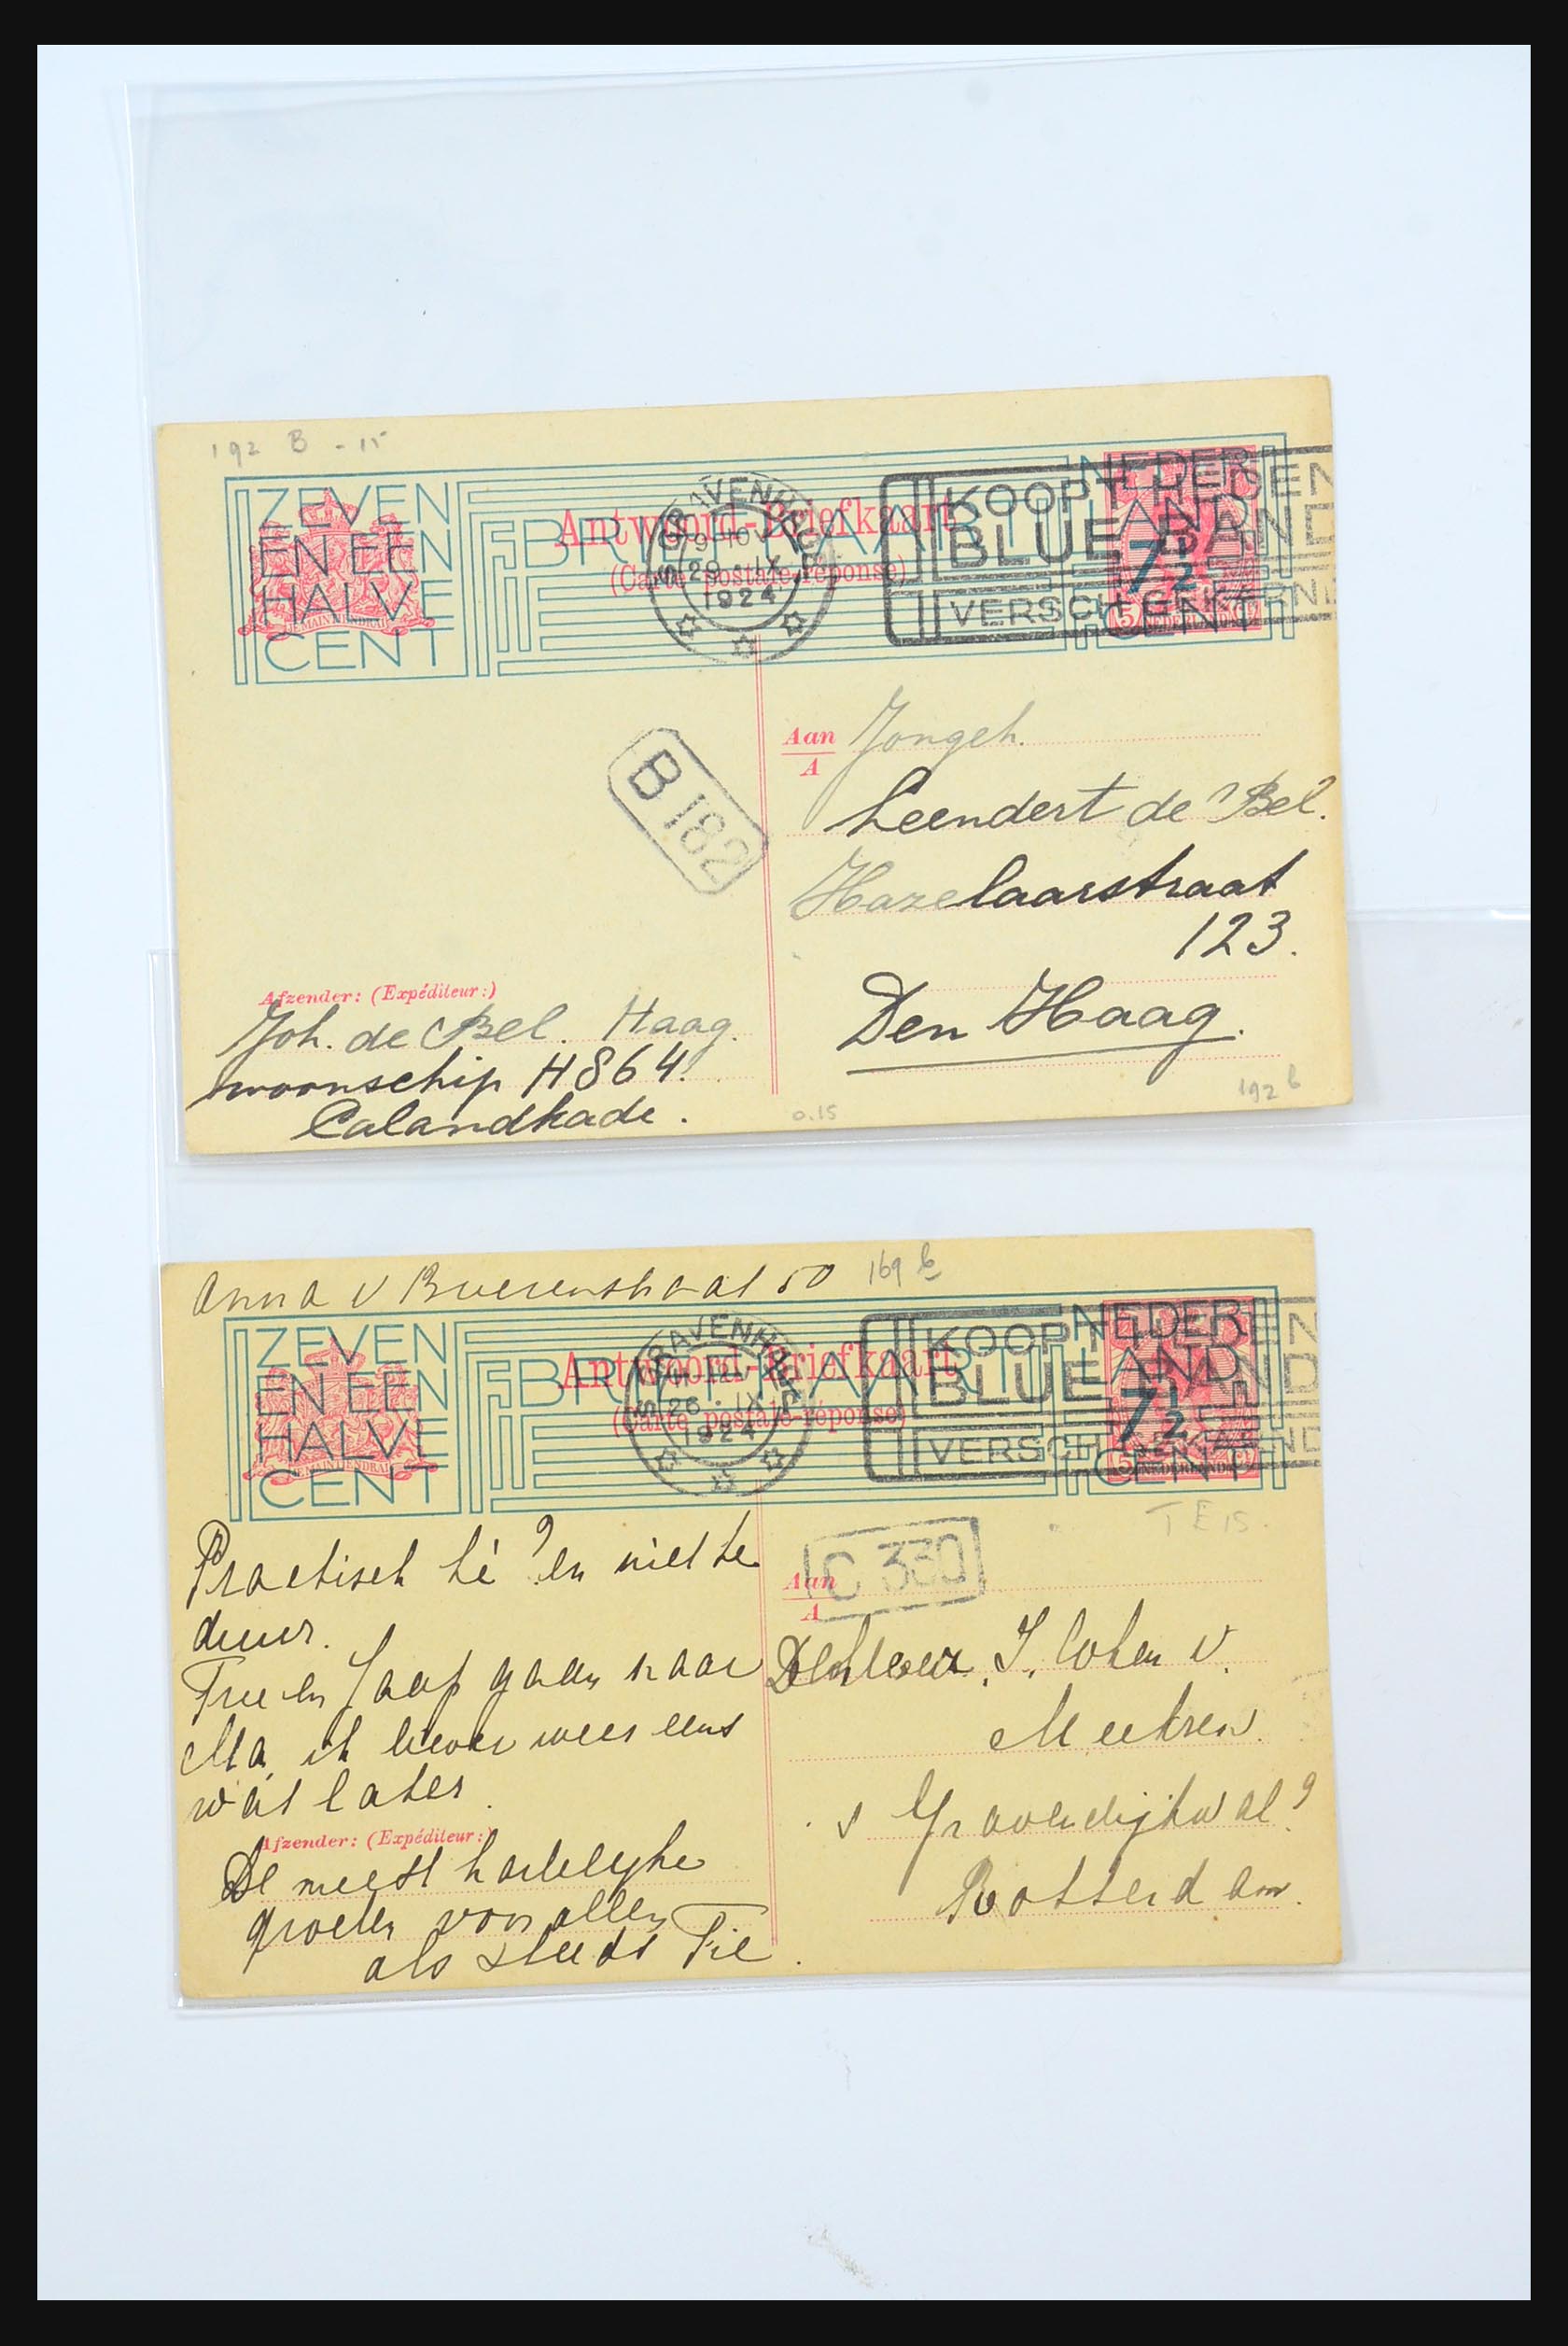 192 B - 15
ZEVEN
EN EEN
HALVE
CENT
BRIEFKAART
Antwoord-Briefkaart
(Carte postale-réponse)
'S GRAVENHAGE
9-10 V
29 . IX
1924
KOOPT
BLUE BAND
VERSCH GEKARND
NEDER
LAND
7½
CENT
5 NEDERLAND
JE MAINTIENDRAI
B 182
Aan
A
Jongeh.
Leendert de Bel.
Hazelaarstraat
123.
Den Haag.
Afzender: (Expéditeur:)
Joh. de Bel. Haag.
woonschip H 864.
Calandkade.
0.15
192 b
Anna v Buerenstraat 50
169 b
ZEVEN
EN EEN
HALVE
CENT
BRIEFKAART
Antwoord-Briefkaart
(Carte postale-réponse)
'S GRAVENHAGE
26 . IX
1924
KOOPT
BLUE BAND
VERSCH GEKARND
NEDER
LAND
7½
CENT
5 NEDERLAND
JE MAINTIENDRAI
TE 15.
C 330
Aan
A
Practisch hè? en niet te
duur.
True en Jaap gaan naar
Ma, ik liever weer eens
wat later.
Afzender: (Expéditeur:)
De meest hartelijke
groeten van allen
als steeds Fie.
I. Cohen v.
Meekren
s Gravendijkwal 9
Rotterdam.